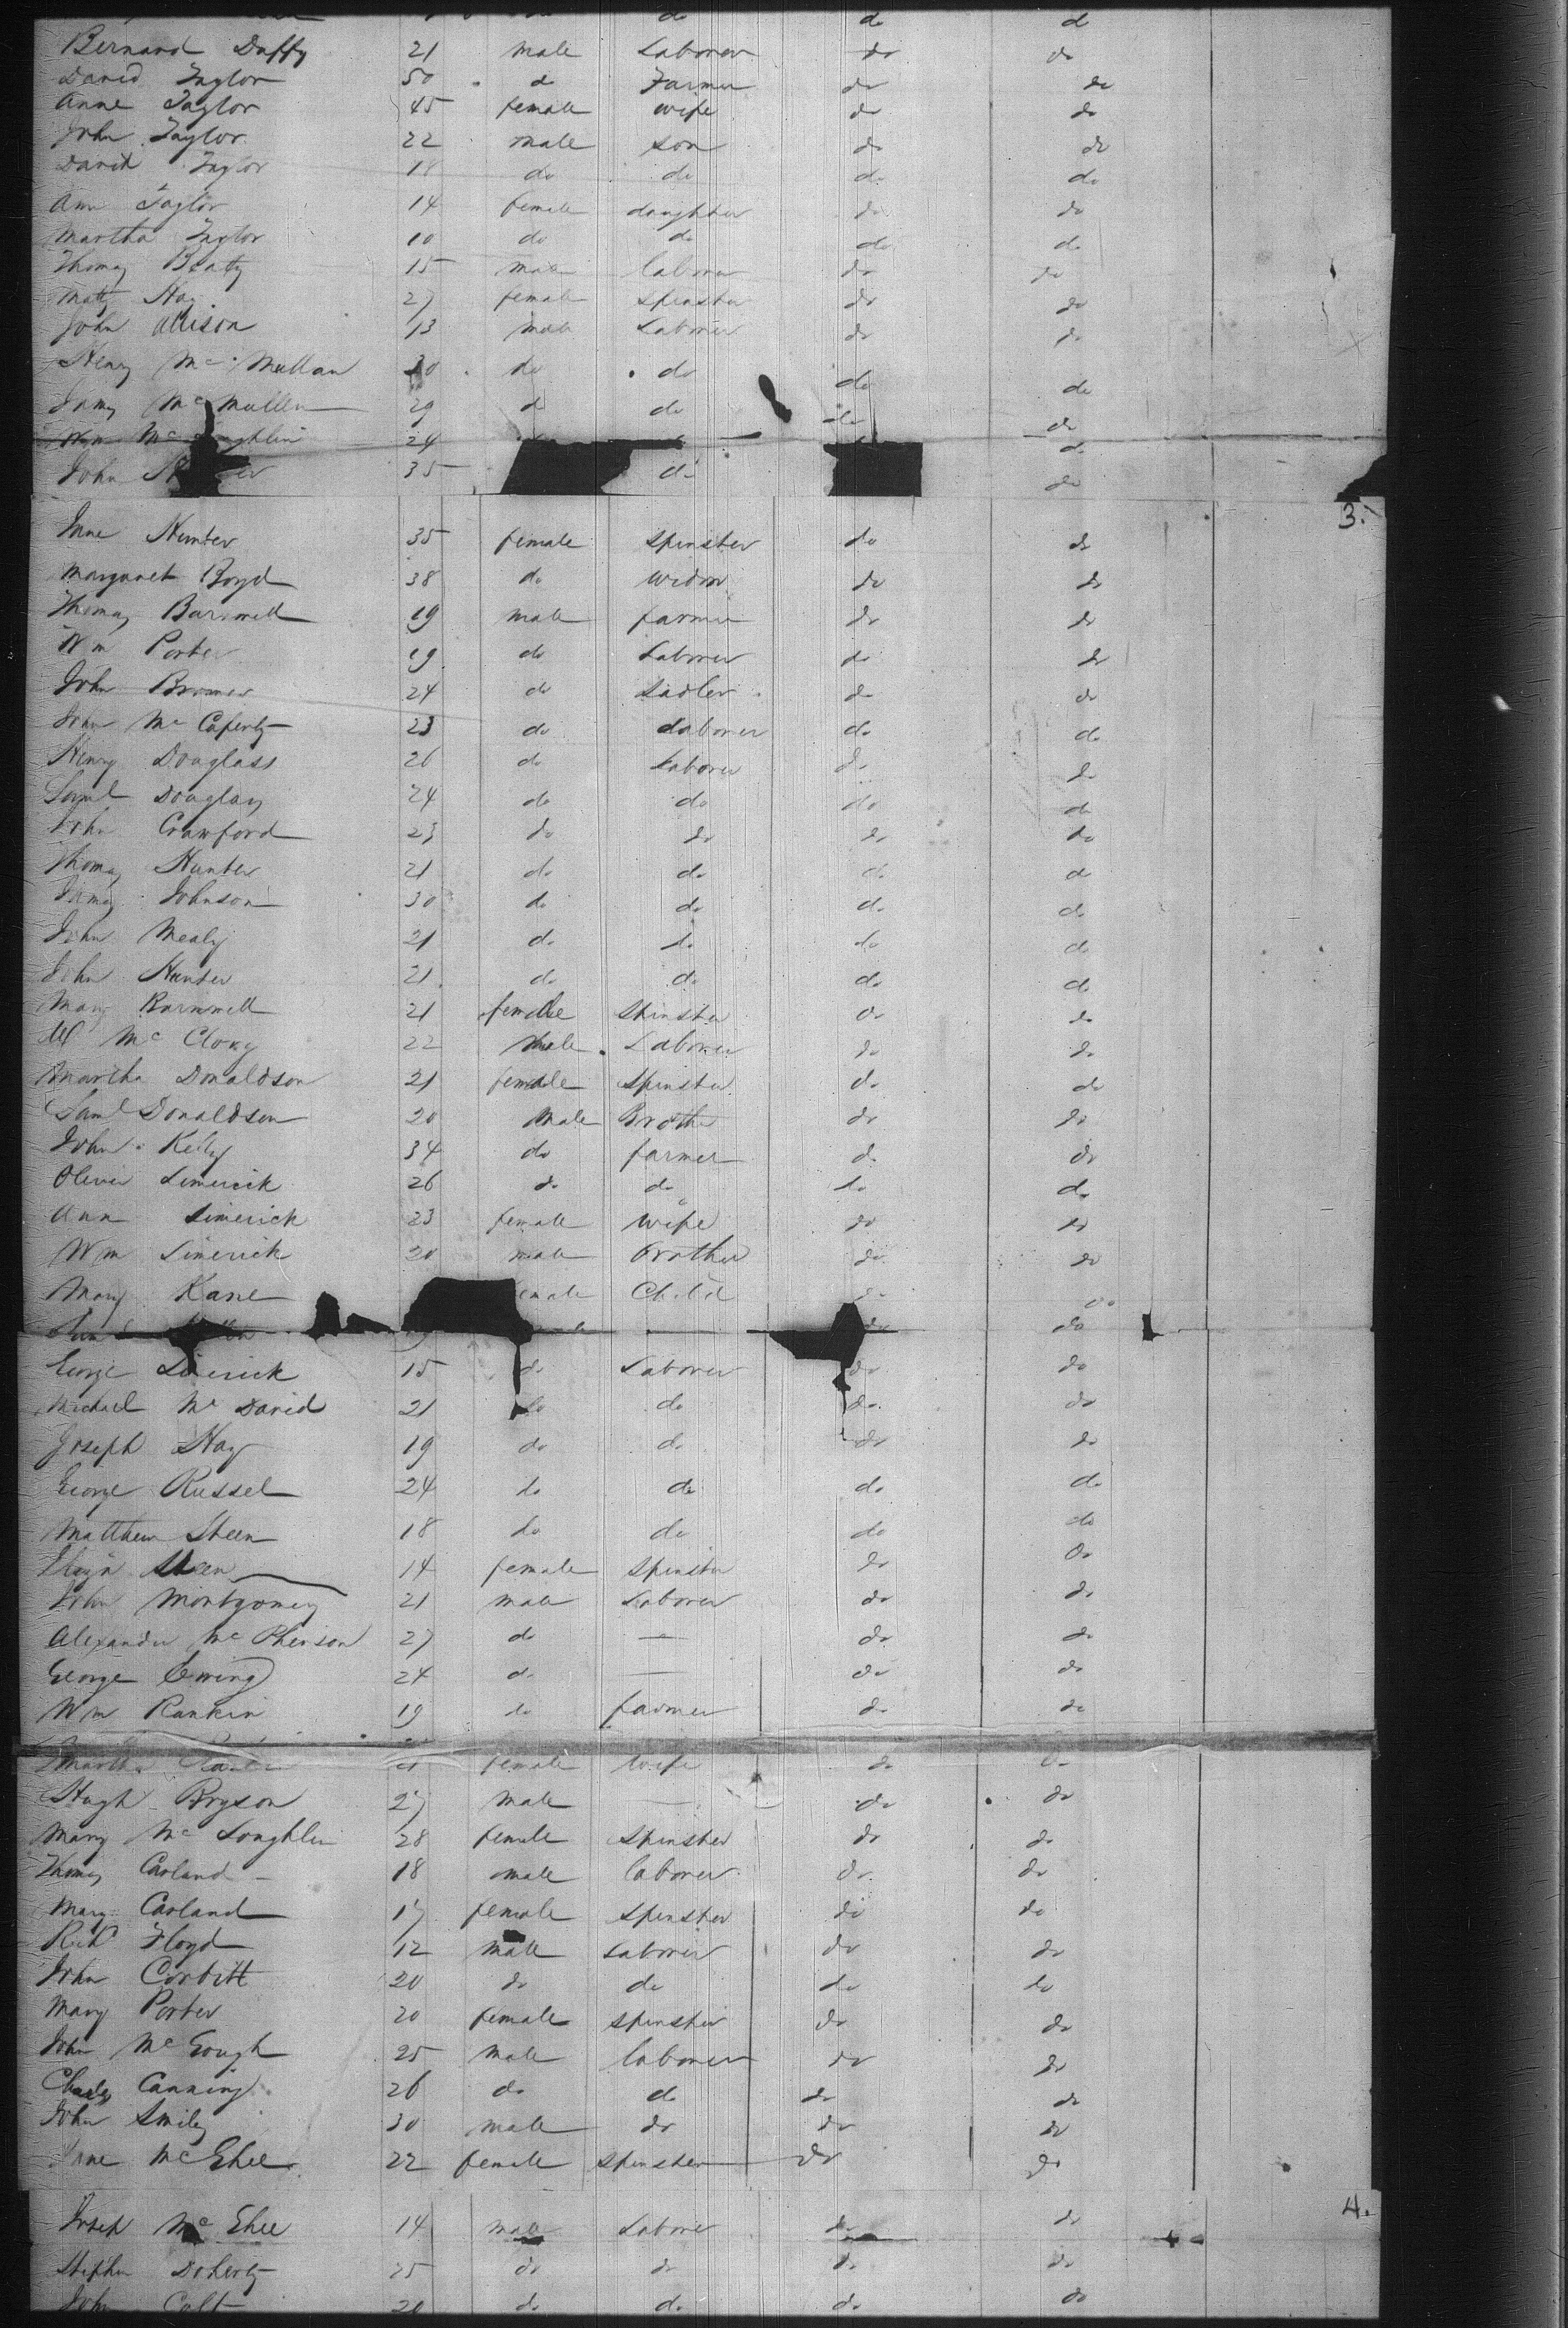 do do do
Bernard Duffy 21 male Laborer do do
David Taylor 50 do Farmer do do
Anne Taylor 45 female wife do do
John Taylor 22 male son do do
David Taylor 18 do do do do
Ann Taylor 14 female daughter do do
Martha Taylor 10 do do do do
Thomas Beaty 15 male laborer do do
Matty Hay 27 female Spinster do do
John Allison 13 male Laborer do do
Henry McMullan 30 do do do do
James McMullen 29 do do do do
Wm 24 do
John 35 do do
3.
Jane Hunter 35 female Spinster do do
Margaret Boyd 38 do widow do do
Thomas Barnwell 19 male farmer do do
Wm Porter 19 do Laborer do do
John 24 do Sadler do do
John McCaferty 23 do Laborer do do
Henry Douglass 26 do Laborer do do
Saml Douglas 24 do do do do
John Crawford 23 do do do do
Thomas Hunter 21 do do do do
James Johnson 30 do do do do
John Mealy 21 do do do do
John Hunter 21 do do do do
Mary Barnwell 21 female Spinster do do
McCloxy 22 Male Laborer do do
Martha Donaldson 21 female Spinster do do
Saml Donaldson 20 Male Brother do do
John Kelly 34 do farmer do do
Oliver Limerick 26 do do do do
Ann Limerick 23 female Wife do do
Wm Limerick 20 male brother do do
Mary Kane emale Child do do
19 do do
George Limerick 15 do Laborer do do
Michael McDavid 21 do do do do
Joseph Hay 19 do do do do
George Russel 24 do do do do
Matthew Steen 18 do do do do
Eliza Steen 14 female Spinster do do
John Montgomery 21 male Laborer do do
Alexander McPherson 27 do — do do
George Ewing 24 do — do do
Wm Rankin 19 do farmer do do
Martha female wife do do
Hugh Bryson 27 male — do do
Mary McLoughlin 28 female Spinster do do
Thomas Carland 18 male laborer do do
Mary Carland 17 female Spinster do do
Richd Floyd 12 male Laborer do do
John Corbitt 20 do do do do
Mary Porter 20 female Spinster do do
John McGough 25 male laborer do do
Charles Canning 26 do do do do
John Smiley 30 male do do do
Jane McGhee 22 female Spinster do do
4.
Joseph McGhee 14 male Laborer do do
Stephen Doherty 25 do do do do
John Colt 20 do do do do